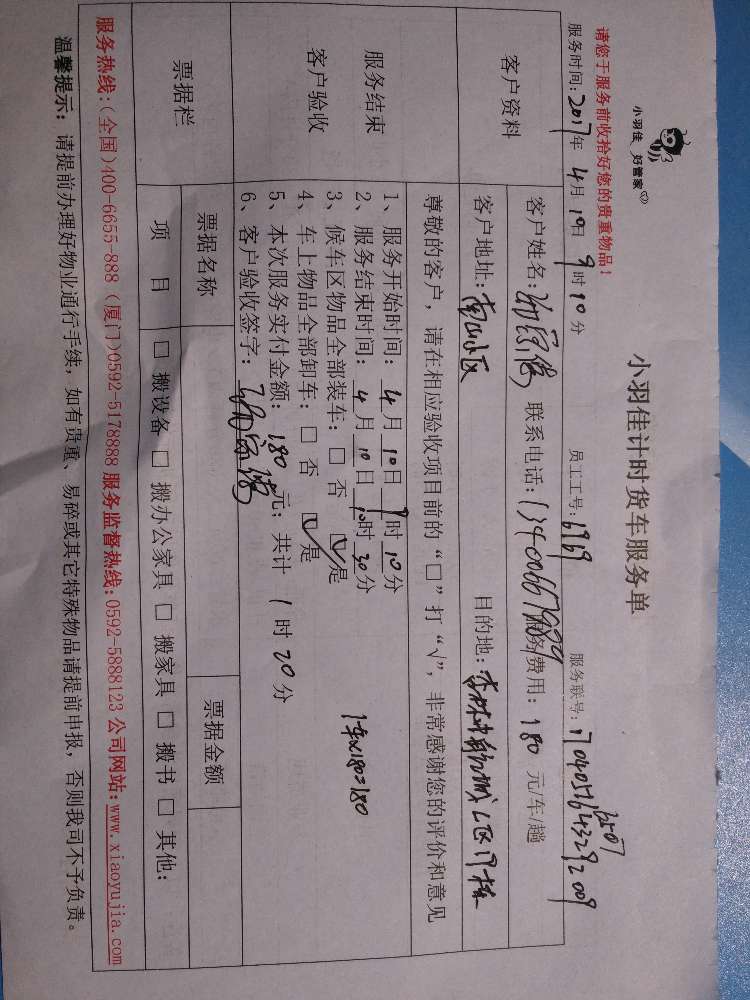 小羽佳 好管家
小羽佳计时货车服务单
请您于服务前收拾好您的贵重物品!
服务时间:2017年4月10日9时10分 员工工号:6969 服务联号:
客户资料
客户姓名: 联系电话: 服务费用:180元/车/趟
客户地址:南山小区 目的地:
尊敬的客户,请在相应验收项目前的“□”打“√”,非常感谢您的评价和意见
服务结束
客户验收
1、服务开始时间:4月10日9时10分
2、服务结束时间:4月10日10时30分
3、候车区物品全部装车:□ 否 ☑是
4、车上物品全部卸车:□ 否 ☑是
5、本次服务实付金额:180元;共计1时20分
1车x180=180
6、客户验收签字:
票据栏
票据名称 票据金额
项 目 □ 搬设备 □ 搬办公家具 □ 搬家具 □ 搬书 □ 其他:
服务热线:(全国)400-6655-888 (厦门)0592-5178888 服务监督热线:0592-5888123 公司网站:www.xiaoyujia.com
温馨提示:请提前办理好物业通行手续,如有贵重、易碎或其它特殊物品请提前申报,否则我司不予负责。